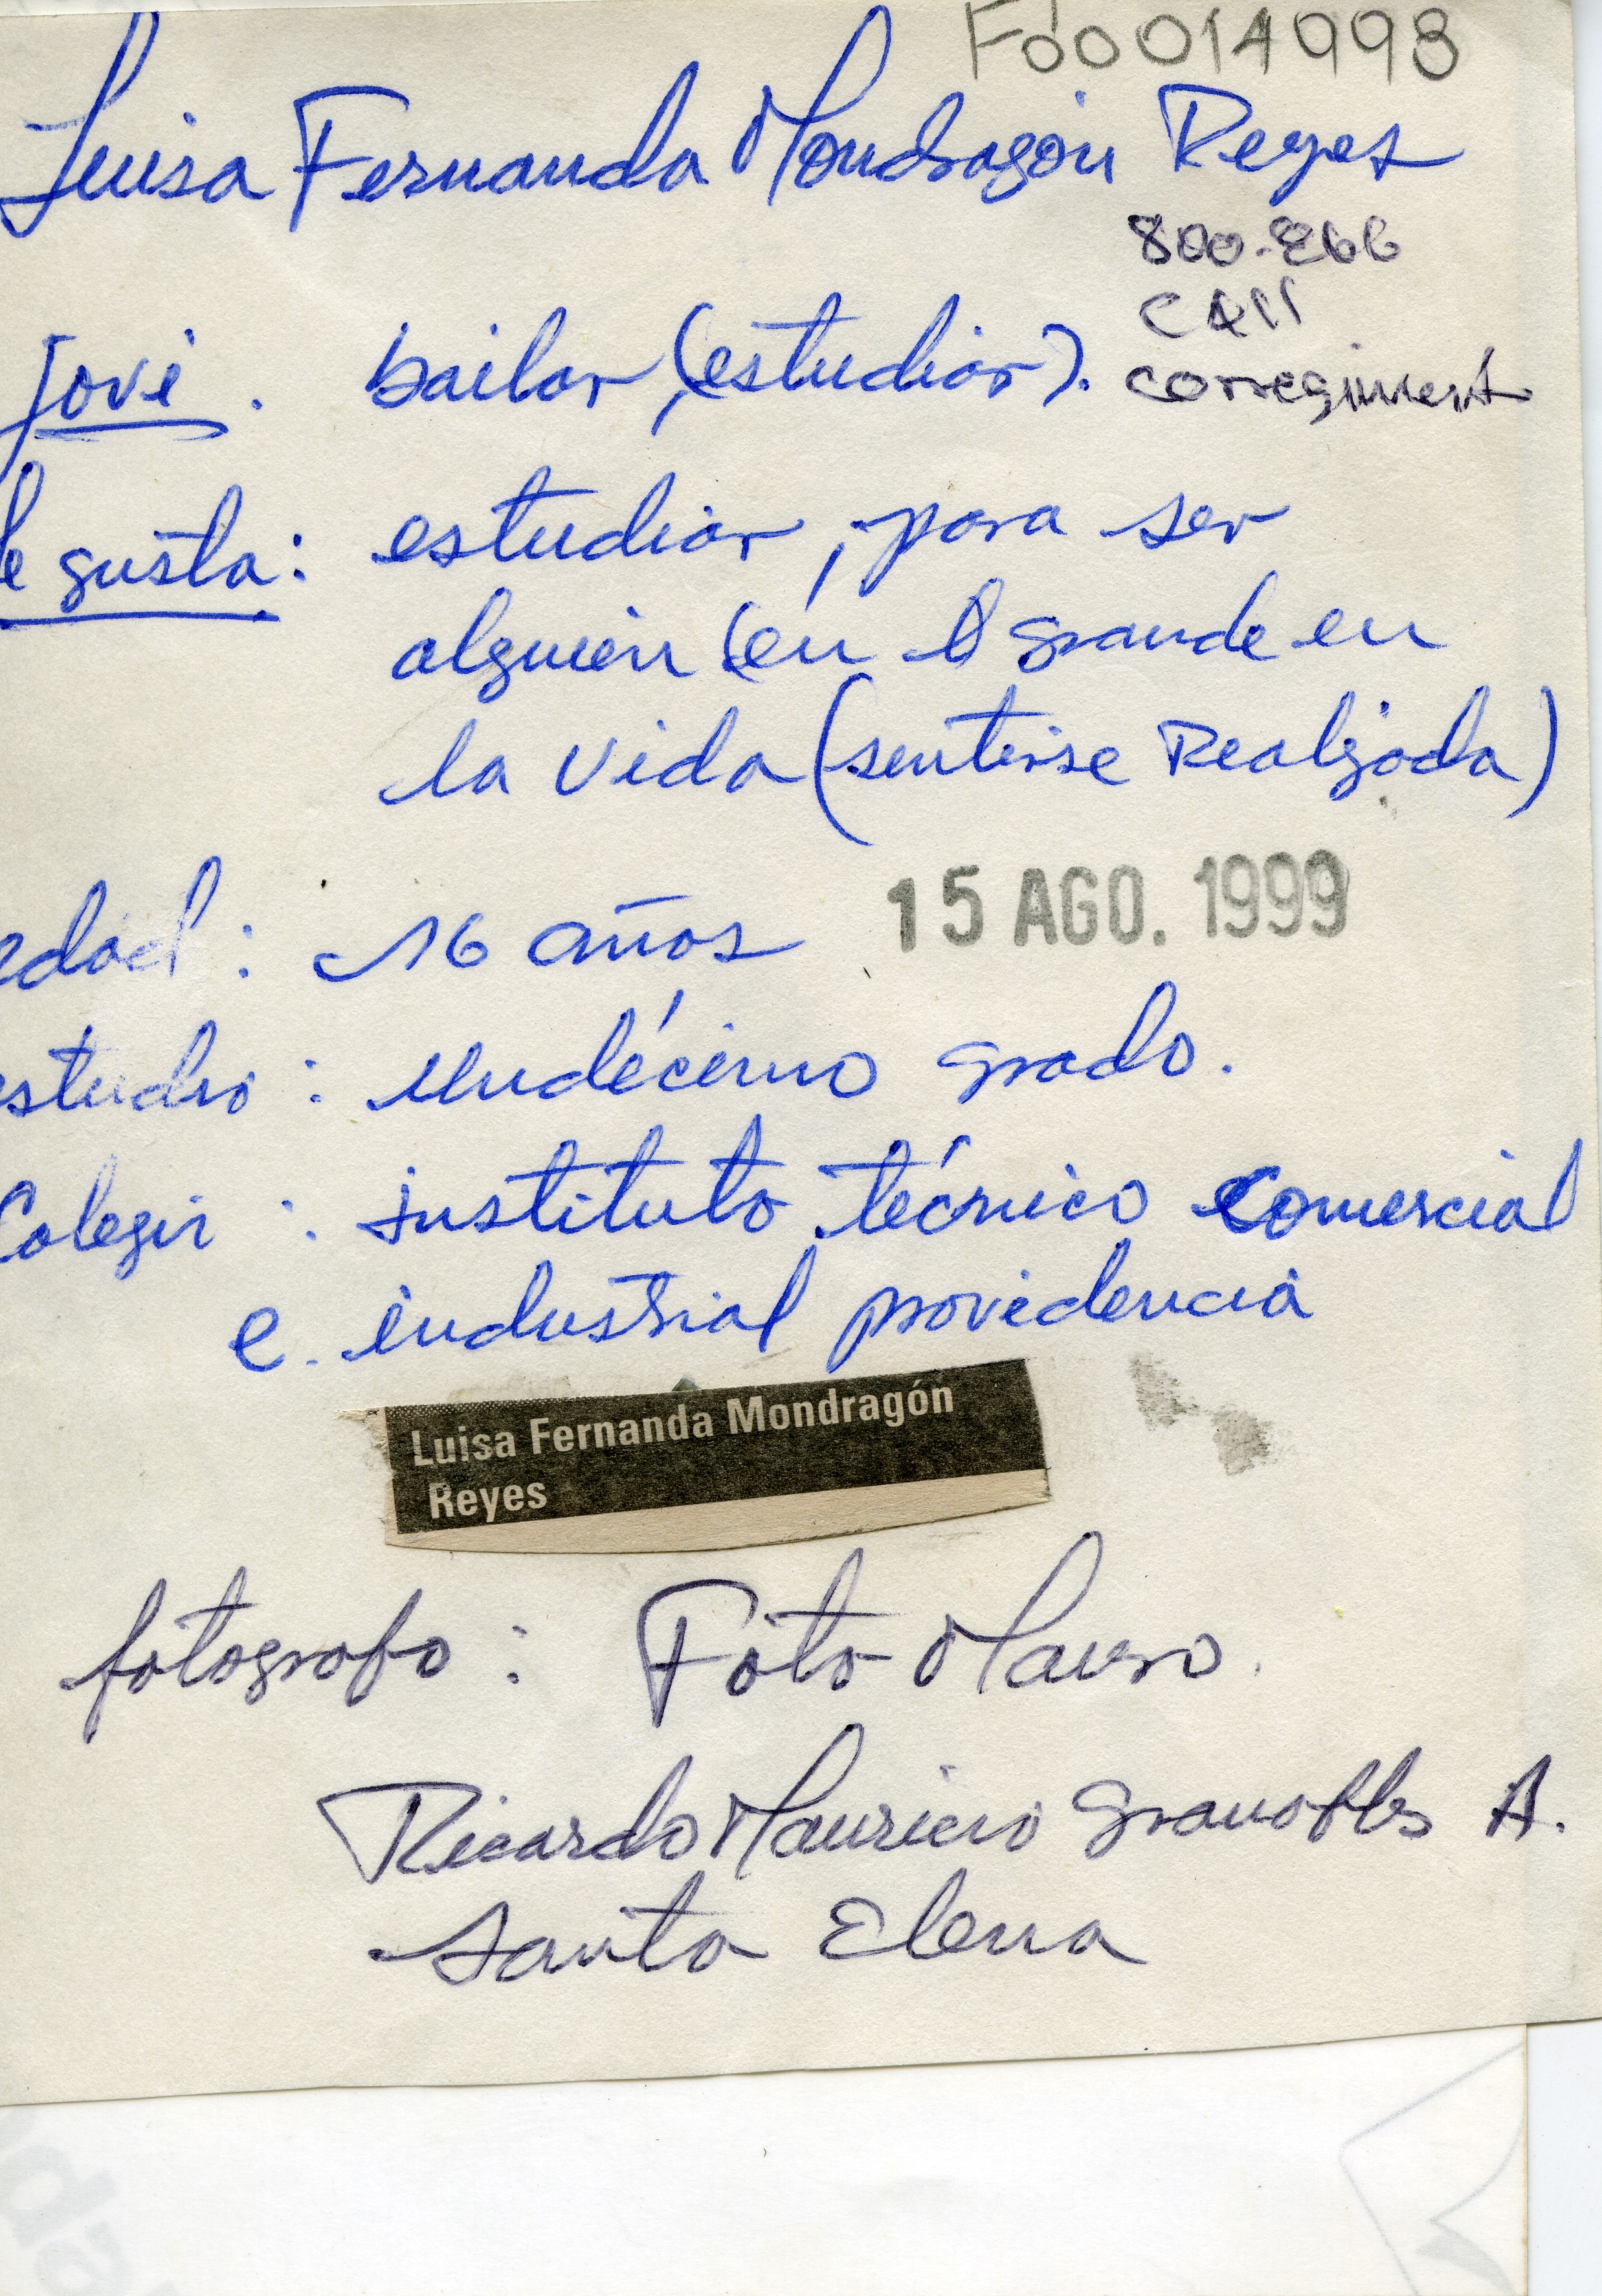 F00014998
Luisa Fernanda Mondragón Reyes
800-266
CALI
corregimient
Jovi. bailar, (estudiar).
le gusta: estudiar, para ser
alguien (en grande en
la vida (sentirse Realizada)
edad: 16 años
15 AGO. 1999
estudio: undécimo grado.
Colegio: instituto técnico comercial
e industrial providencia
Luisa Fernanda Mondragón
Reyes
fotografo: Foto Mauro.
Ricardo Mauricio Granobles A.
Santa Elena